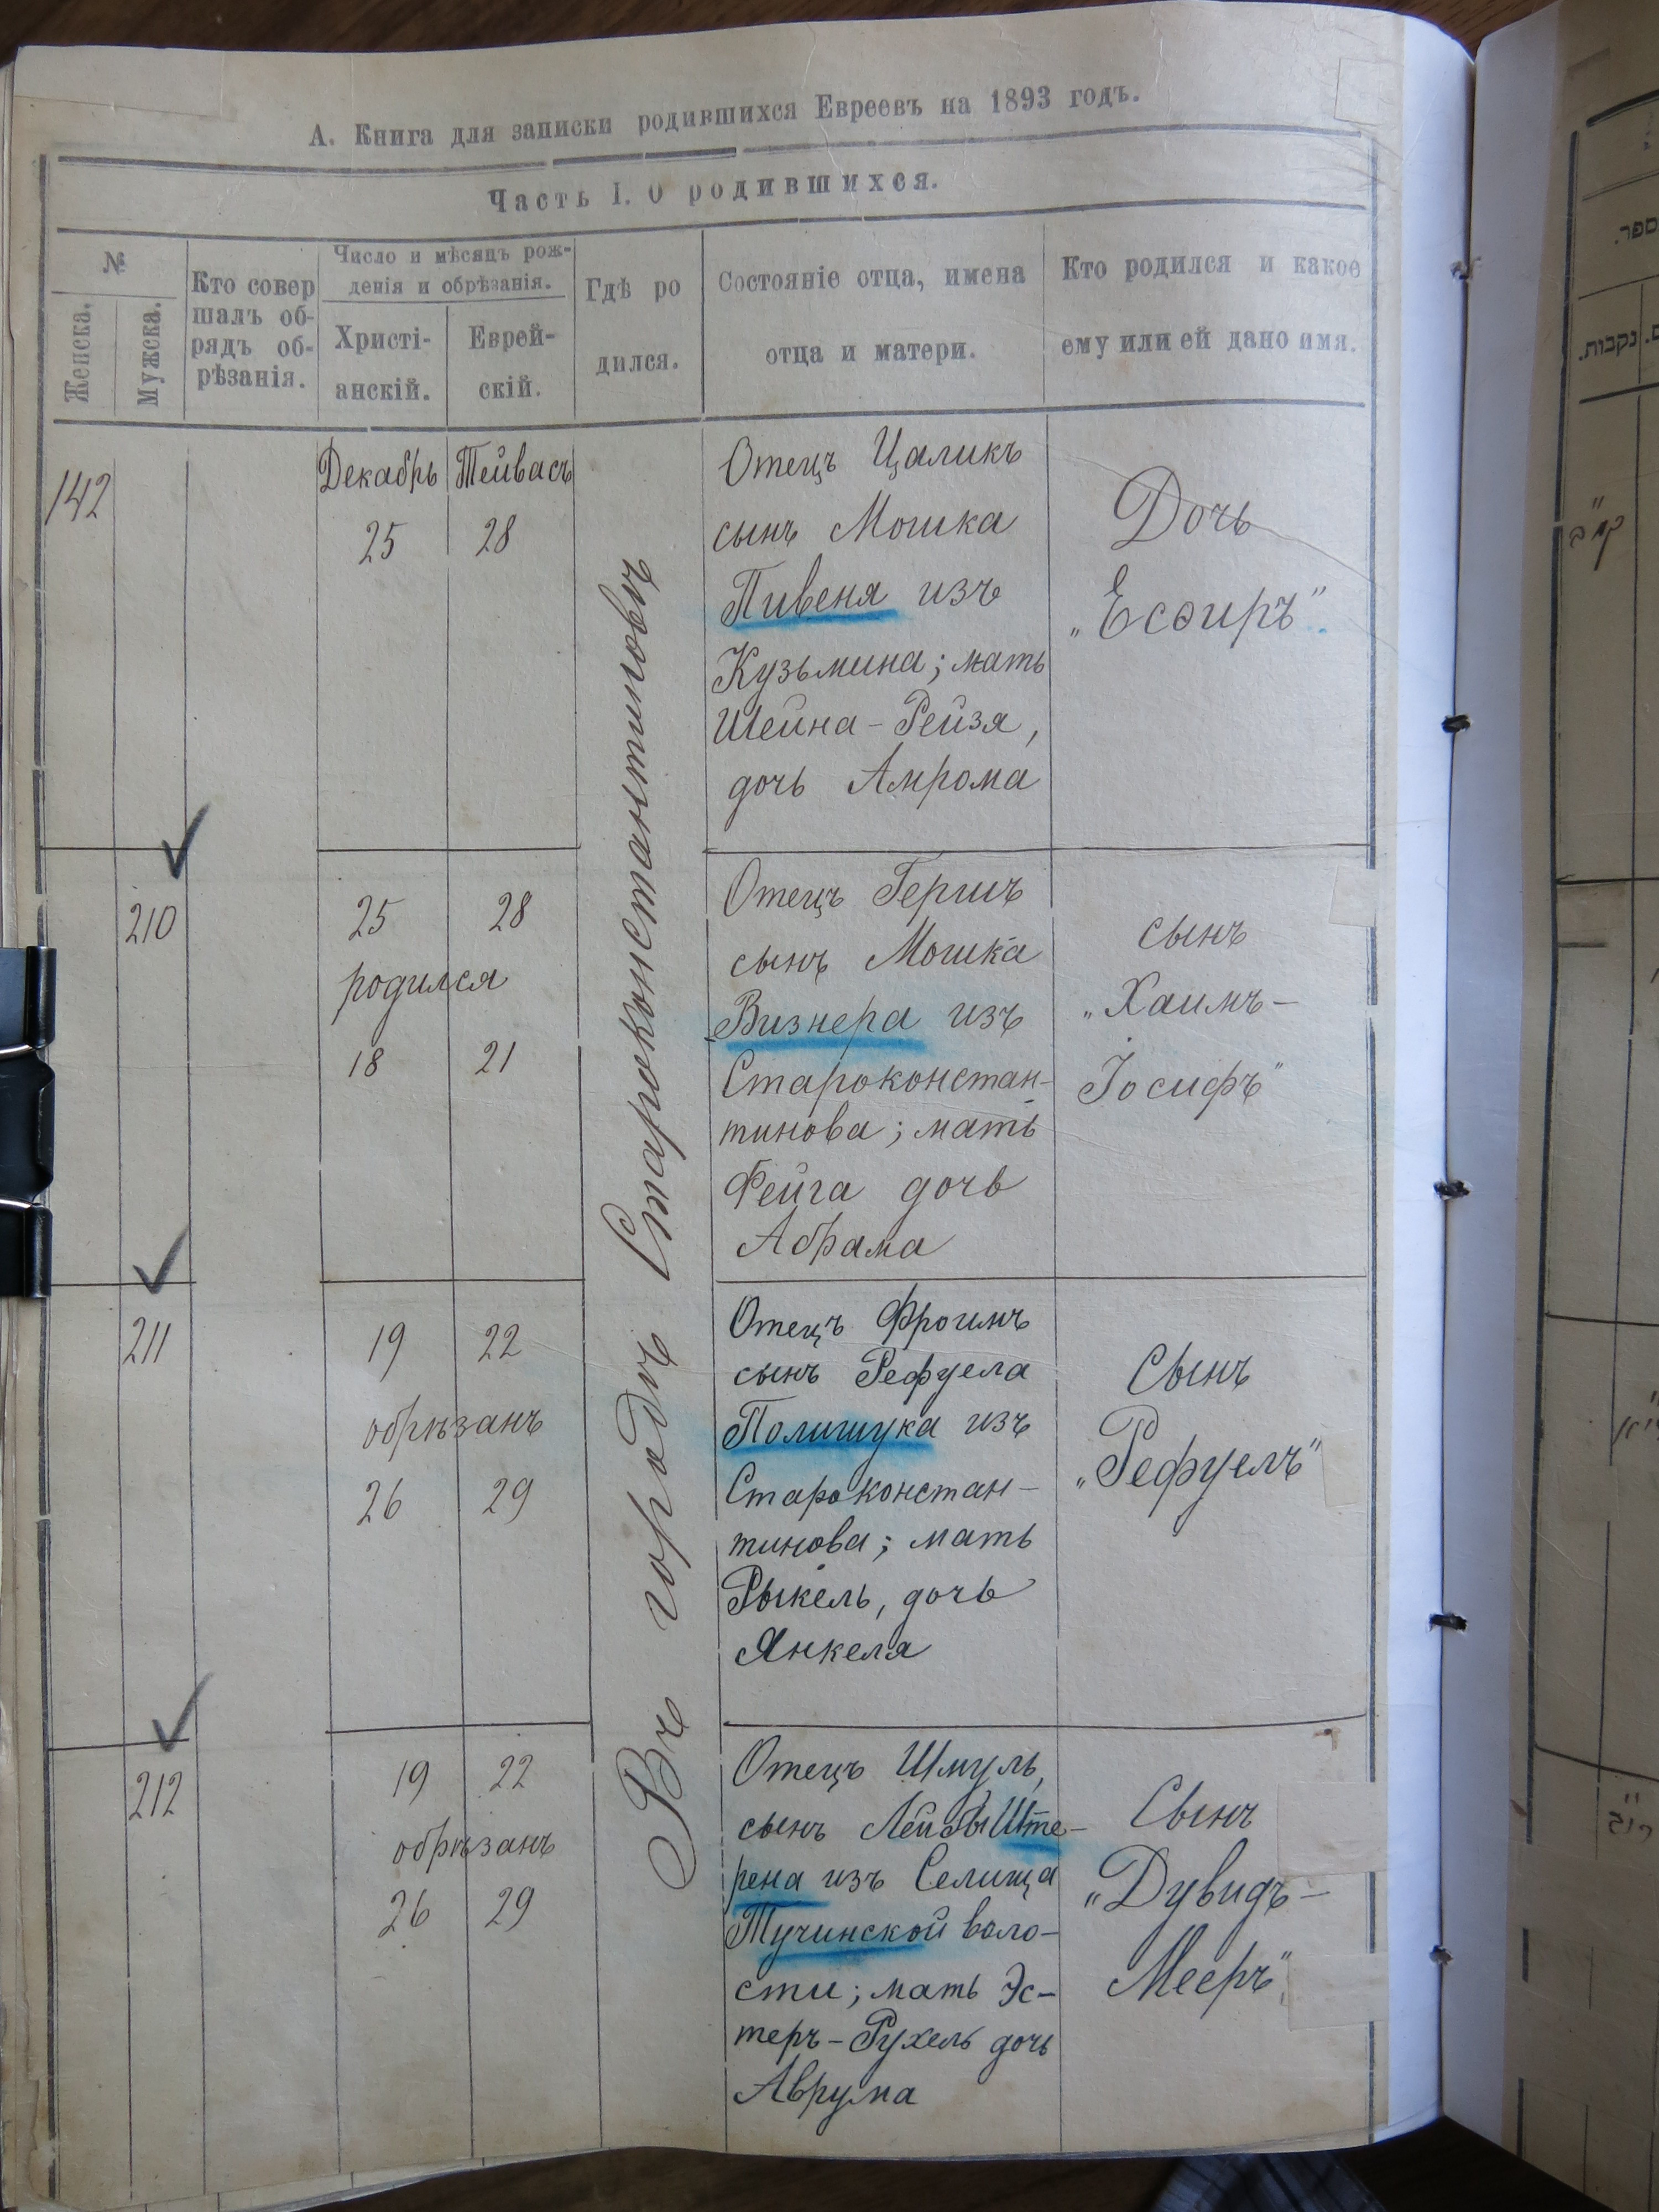 А. Книга для записки родившихся Евреевъ на 1893 годъ.
Часть I. О родившихся.
№
Женска.
Мужска.
Кто совер
шалъ об-
рядъ об-
рѣзанія.
Число и мѣсяцъ рож-
денія и обрѣзанія.
Христі-
анскій.
Еврей-
скій.
Гдѣ ро
дился.
Состояніе отца, имена
отца и матери.
Кто родился и какое
ему или ей дано имя.
Въ городѣ Староконстантиновѣ
142
Декабрь Тейвасъ
25 28
Отецъ Цаликъ
сынъ Мошка
Пивеня изъ
Кузьмина; мать
Шейна-Рейзя,
дочь Амрома
Дочь
„Есѳиръ"
210
25 28
родился
18 21
Отецъ Гершъ
сынъ Мошка
Визнера изъ
Староконстан-
тинова; мать
Фейга дочь
Абрама
сынъ
„Хаимъ-
Іосифъ"
211
19 22
обрѣзанъ
26 29
Отецъ Фроимъ
сынъ Рефуела
Полищука изъ
Староконстан-
тинова; мать
Рыкель, дочь
Янкеля
Сынъ
„Рефуелъ"
212
19 22
обрѣзанъ
26 29
Отецъ Шмуль,
сынъ Лейбы Ште-
рена изъ Селища
Тучинской воло-
сти; мать Эс-
теръ-Рухель дочь
Аврума
Сынъ
„Дувидъ-
Мееръ"
ספר.
נקבות.
קמב